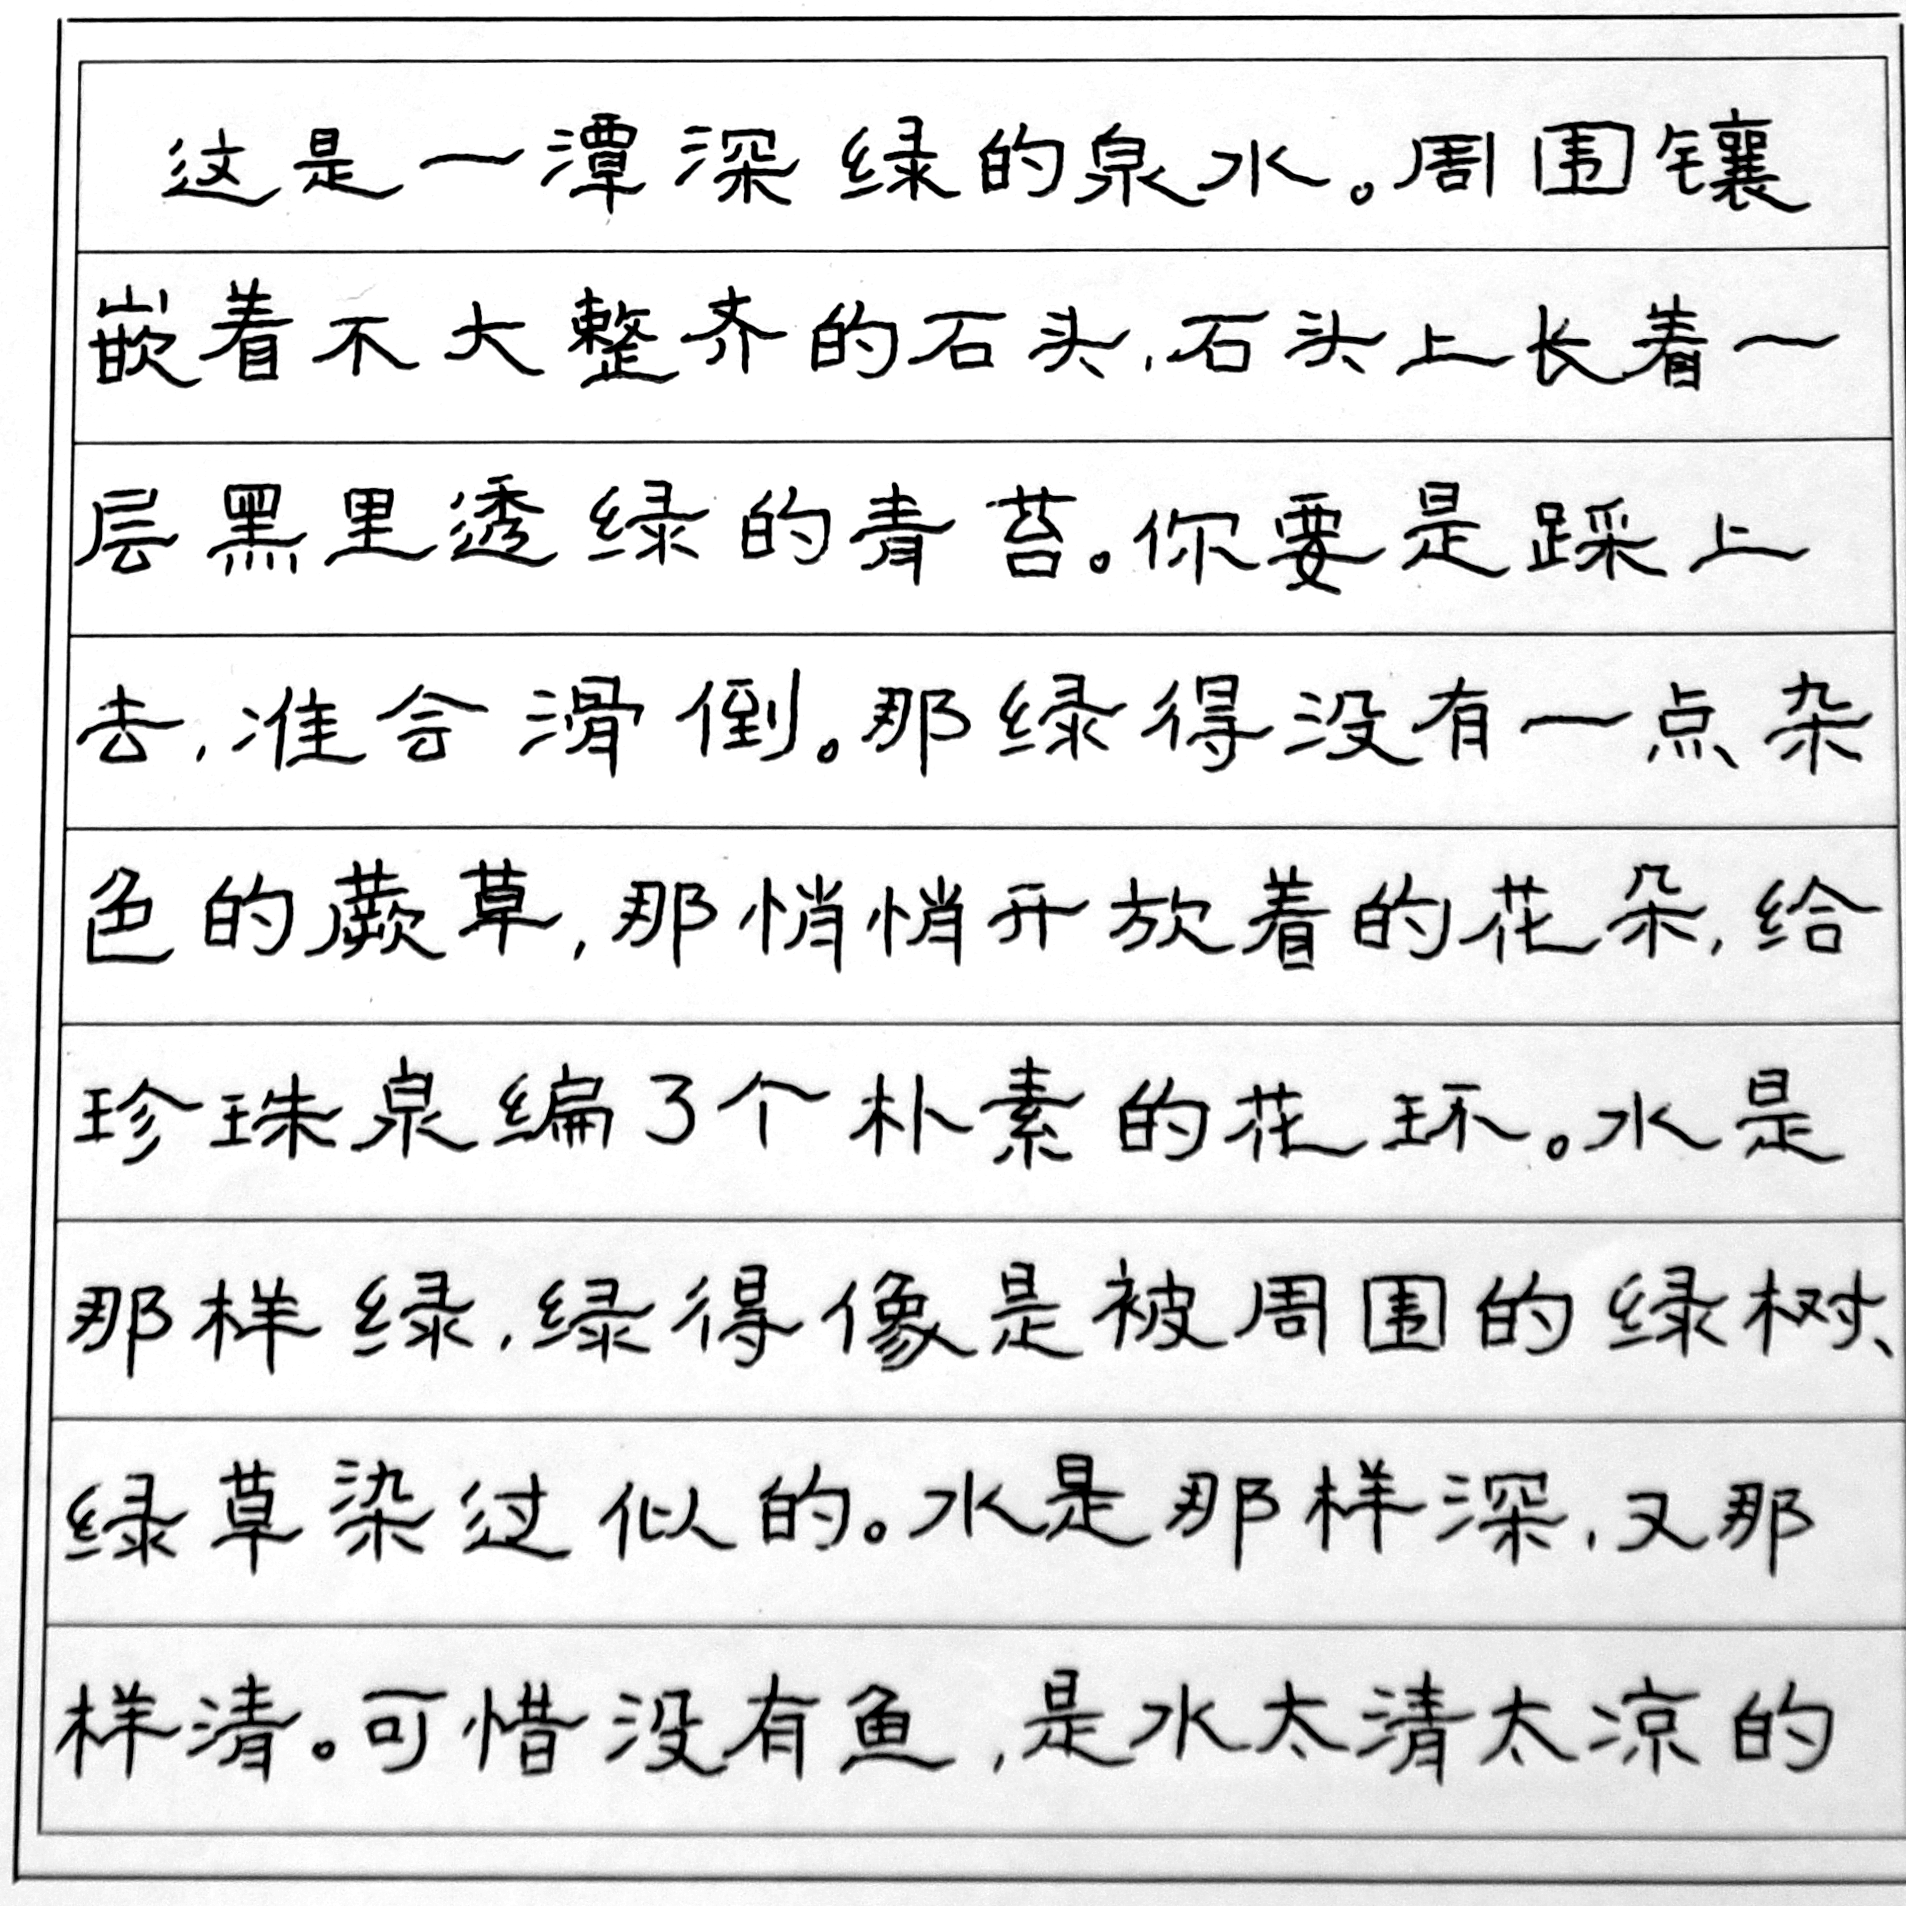 这是一潭深绿的泉水。周围镶
嵌着不大整齐的石头,石头上长着一
层黑里透绿的青苔。你要是踩上
去,准会滑倒。那绿得没有一点杂
色的蕨草,那悄悄开放着的花朵,给
珍珠泉编了个朴素的花环。水是
那样绿,绿得像是被周围的绿树、
绿草染过似的。水是那样深,又那
样清。可惜没有鱼,是水太清太凉的